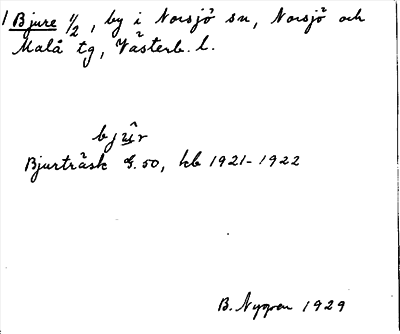 1 Bjure 1/2, by i Norsjö sn, Norsjö och
Malå tg, Västerb. l.
bjûr
Bjurträsk G. 50, kb 1921-1922
B. Nygren 1929